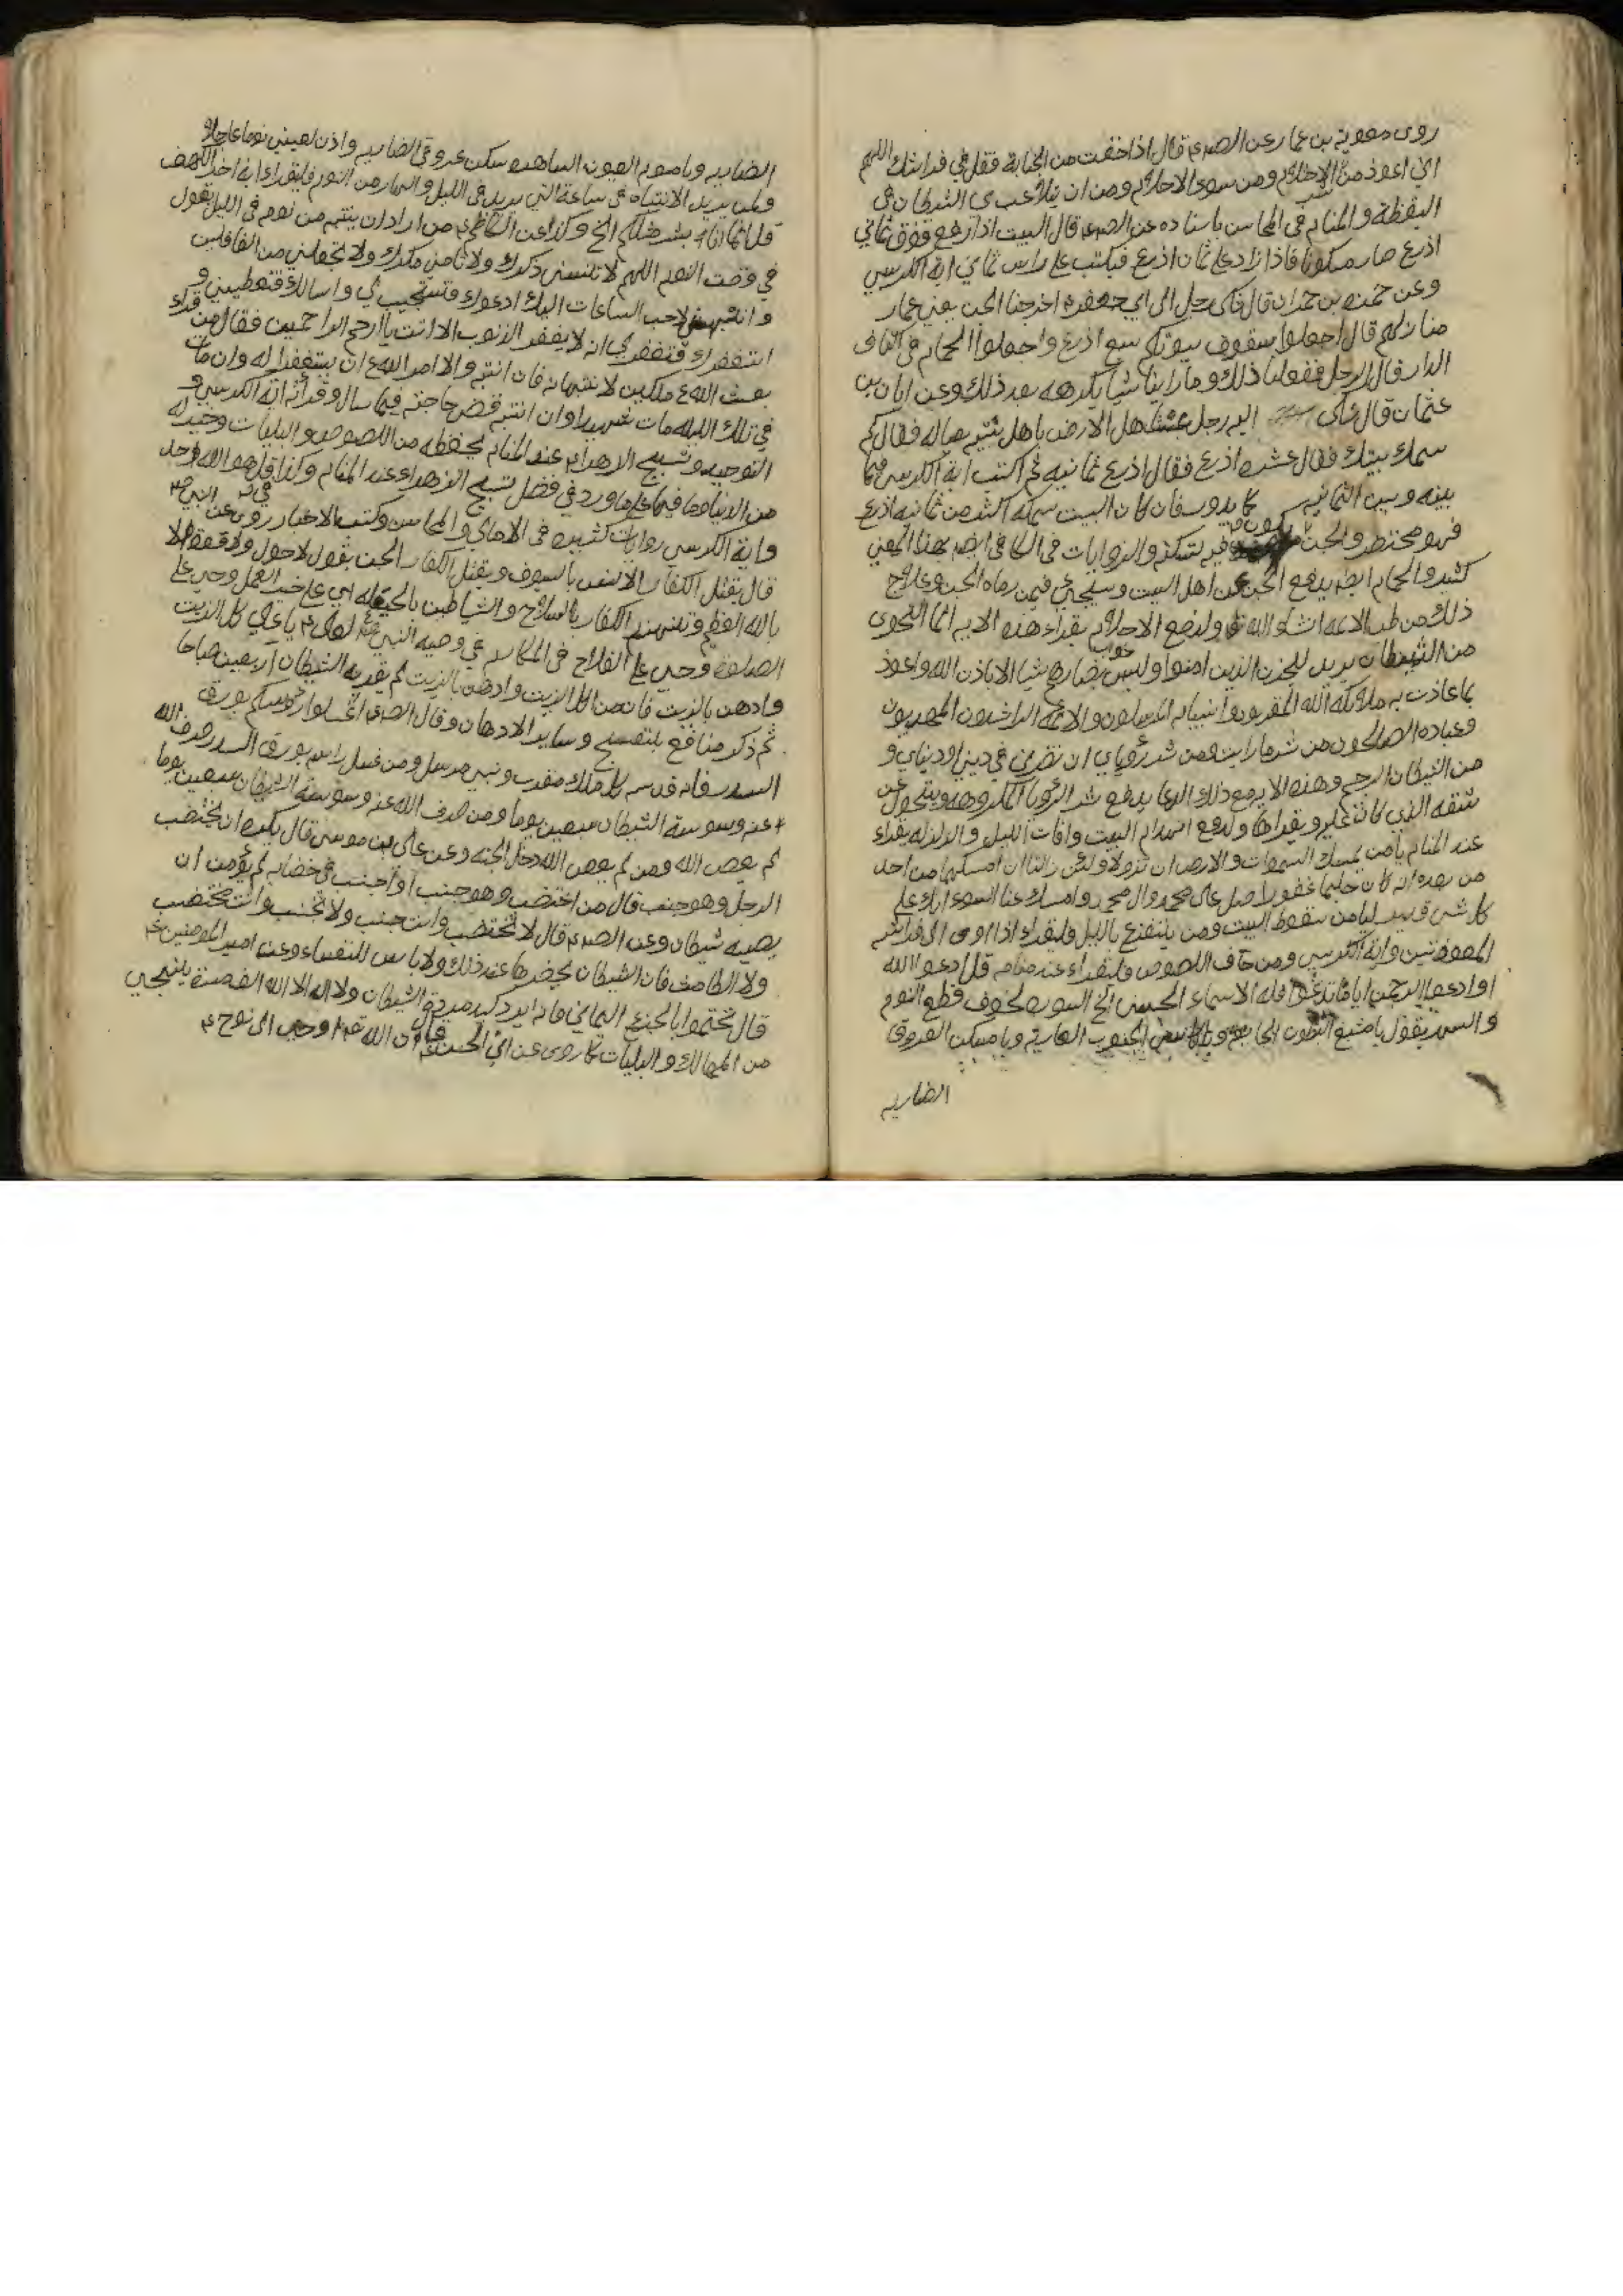 روى معوية بن عمار عن الصم قال اذا خفت من الجنابة فقل في فراشك اللهم
اني اعوذ من الاحتلام ومن سوء الاحلام ومن ان يتلاعب بي الشيطان في
اليقظة والمنام في المحاسن باسناده عن الصم قال البيت اذا ارتفع فوق ثماني
اذرع صار مسكونا فاذا زاد على ثمان اذرع فيكتب على راس ثماني اية الكرسي
وعن حمزه بن حمران قال شكى رجل الى ابي جعفر اخرجنا الجن يعني عمار
منازلهم قال اجعلوا سقوف بيوتكم سبع اذرع واجعلوا الحمام في اكناف
الدار قال الرجل ففعلنا ذلك وما راينا شيا نكرهه بعد ذلك وعن ابان بن
عثمان قال شكى اليه رجل عبث اهل الارض باهل بيته بعياله فقال كم
سمك بيتك فقال عشره اذرع فقال اذرع ثمانيه ثم اكتب اية الكرسي فيما
بينه وبين الثمانيه كما يدور فان كان البيت سمكه اكثر من ثمانيه اذرع
فهو محتضر والجن يكون فيه تسكنه والروايات في الكافي ايضا بهذا المعنى
كثير والحمام ايضا يدفع الجن عن اهل البيت وسيجيئ فيمن رماه الجن وعلاج
ذلك من طب الائمه انشاء الله ولدفع الاحلام يقراء هذه الايه انما النجوى
من الشيطان ليحزن الذين امنوا وليس بضارهم شيا الا باذن الله واعوذ
بما عاذت به ملائكه الله المقربون وانبيائه المرسلون والائمه الراشدون المهديون
وعباده الصالحون من شر ما رايت ومن شر رؤياي ان تضرني في ديني ودنياي و
من الشيطان الرجيم وهذه الايه مع ذلك الدعا يدفع شر الرؤيا المكروهه ويتحول عن
شقه الذي كان عليه ويقراها ولدفع انهدام البيت وافات الليل والزلزله يقراء
عند المنام يا من يمسك السموات والارض ان تزولا ولئن زالتا ان امسكهما من احد
من بعده انه كان حليما غفورا صل على محمد وال محمد وامسك عنا السوء انك على
كل شئ قدير ليامن سقوط البيت ومن يتفزع بالليل فليقراء اذا اوى الى فراشه
المعوذتين واية الكرسي ومن خاف اللصوص فليقراء عند منامه قل ادعوا الله
او ادعوا الرحمن اياما تدعوا فله الاسماء الحسنى الخ السوره لخوف قطع النوم
والسهر يقول يا مشبع البطون الجايعه ويا كاسي الجنوب العاريه ويا مسكن العروق
الضاربه
الضاربه ويا منوم العيون الساهره سكن عروقي الضاربه واذن لعيني نوما عاجلا
ولمن يريد الانتباه في ساعة التي يريد في الليل والنهار من النوم فليقراء اية اخر الكهف
قل انما انا بشر مثلكم الخ وكذا عن الكاظم من اراد ان ينتبه من نومه في الليل يقول
في وقت النوم اللهم لا تنسني ذكرك ولا تؤمني مكرك ولا تجعلني من الغافلين
وانبهني لاحب الساعات اليك ادعوك فتستجيب لي واسالك فتعطيني و
استغفرك فتغفر لي انه لا يغفر الذنوب الا انت يا ارحم الراحمين فقال من قراه
بعث الله ملكين لانتباهه فان انتبه والا امر الله ان يستغفرا له وان مات
في تلك الليله مات شهيدا وان انتبه قضى حاجته فيما سال وقراة اية الكرسي و
التوحيد وتسبيح الزهراء عند المنام يحفظه من اللصوص والبليات وخير له
من الدنيا وما فيها كما ورد في فضل تسبيح الزهراء عند المنام وكذا قل هو الله احد
واية الكرسي روايات كثيره في الامالي والمحاسن وكتب الاخبار روى عن النبي
قال يقتل الكفار الانس بالسيوف ويقتل الكفار الجن بقول لا حول ولا قوة الا
بالله العظيم وتنهزم الكفار بالسلاح والشياطين بالحيعله اي على خير العمل وحي على
الصلوة وحي على الفلاح في المكارم في وصيه النبي لعلي يا علي كل الزيت
وادهن بالزيت فان من اكل الزيت وادهن بالزيت لم يقربه الشيطان اربعين صباحا
ثم ذكر منافع بنفسج وساير الادهان وقال الصم اغسلوا رؤسكم بورق
السدر فانه قدسه كل ملك مقرب ونبي مرسل ومن غسل راسه بورق السدر صرف الله
عنه وسوسة الشيطان سبعين يوما ومن صرف الله عنه وسوسة الشيطان سبعين يوما
لم يعص الله ومن لم يعص الله دخل الجنه وعن علي بن موسى قال يكره ان يختضب
الرجل وهو جنب قال من اختضب وهو جنب او اجنب في خضابه لم يؤمن ان
يصيبه شيطان وعن الصم قال لا تختضب وانت جنب ولا تجنب وانت مختضب
ولا الطامث فان الشيطان يحضرها عند ذلك ولا باس للنفساء وعن امير المومنين
قال تختموا بالجزع اليماني فانه يرد كيد مردة الشيطان ولا اله الا الله الف مرة ينجي
من المهالك والبليات كما روى عن ابي الحسن قال ان الله اوحى الى نوح